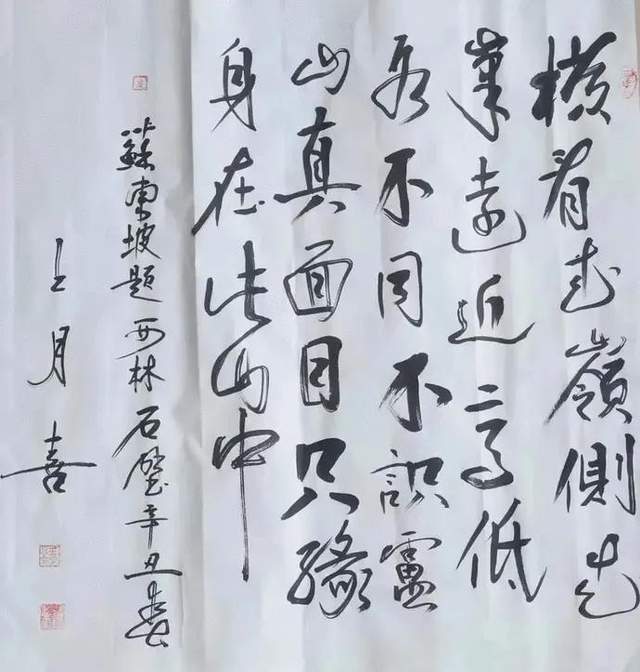 橫看成嶺側成
峯遠近高低
各不同不識盧
山真面目只緣
身在此山中
蘇東坡題西林石壁辛丑春
王月喜